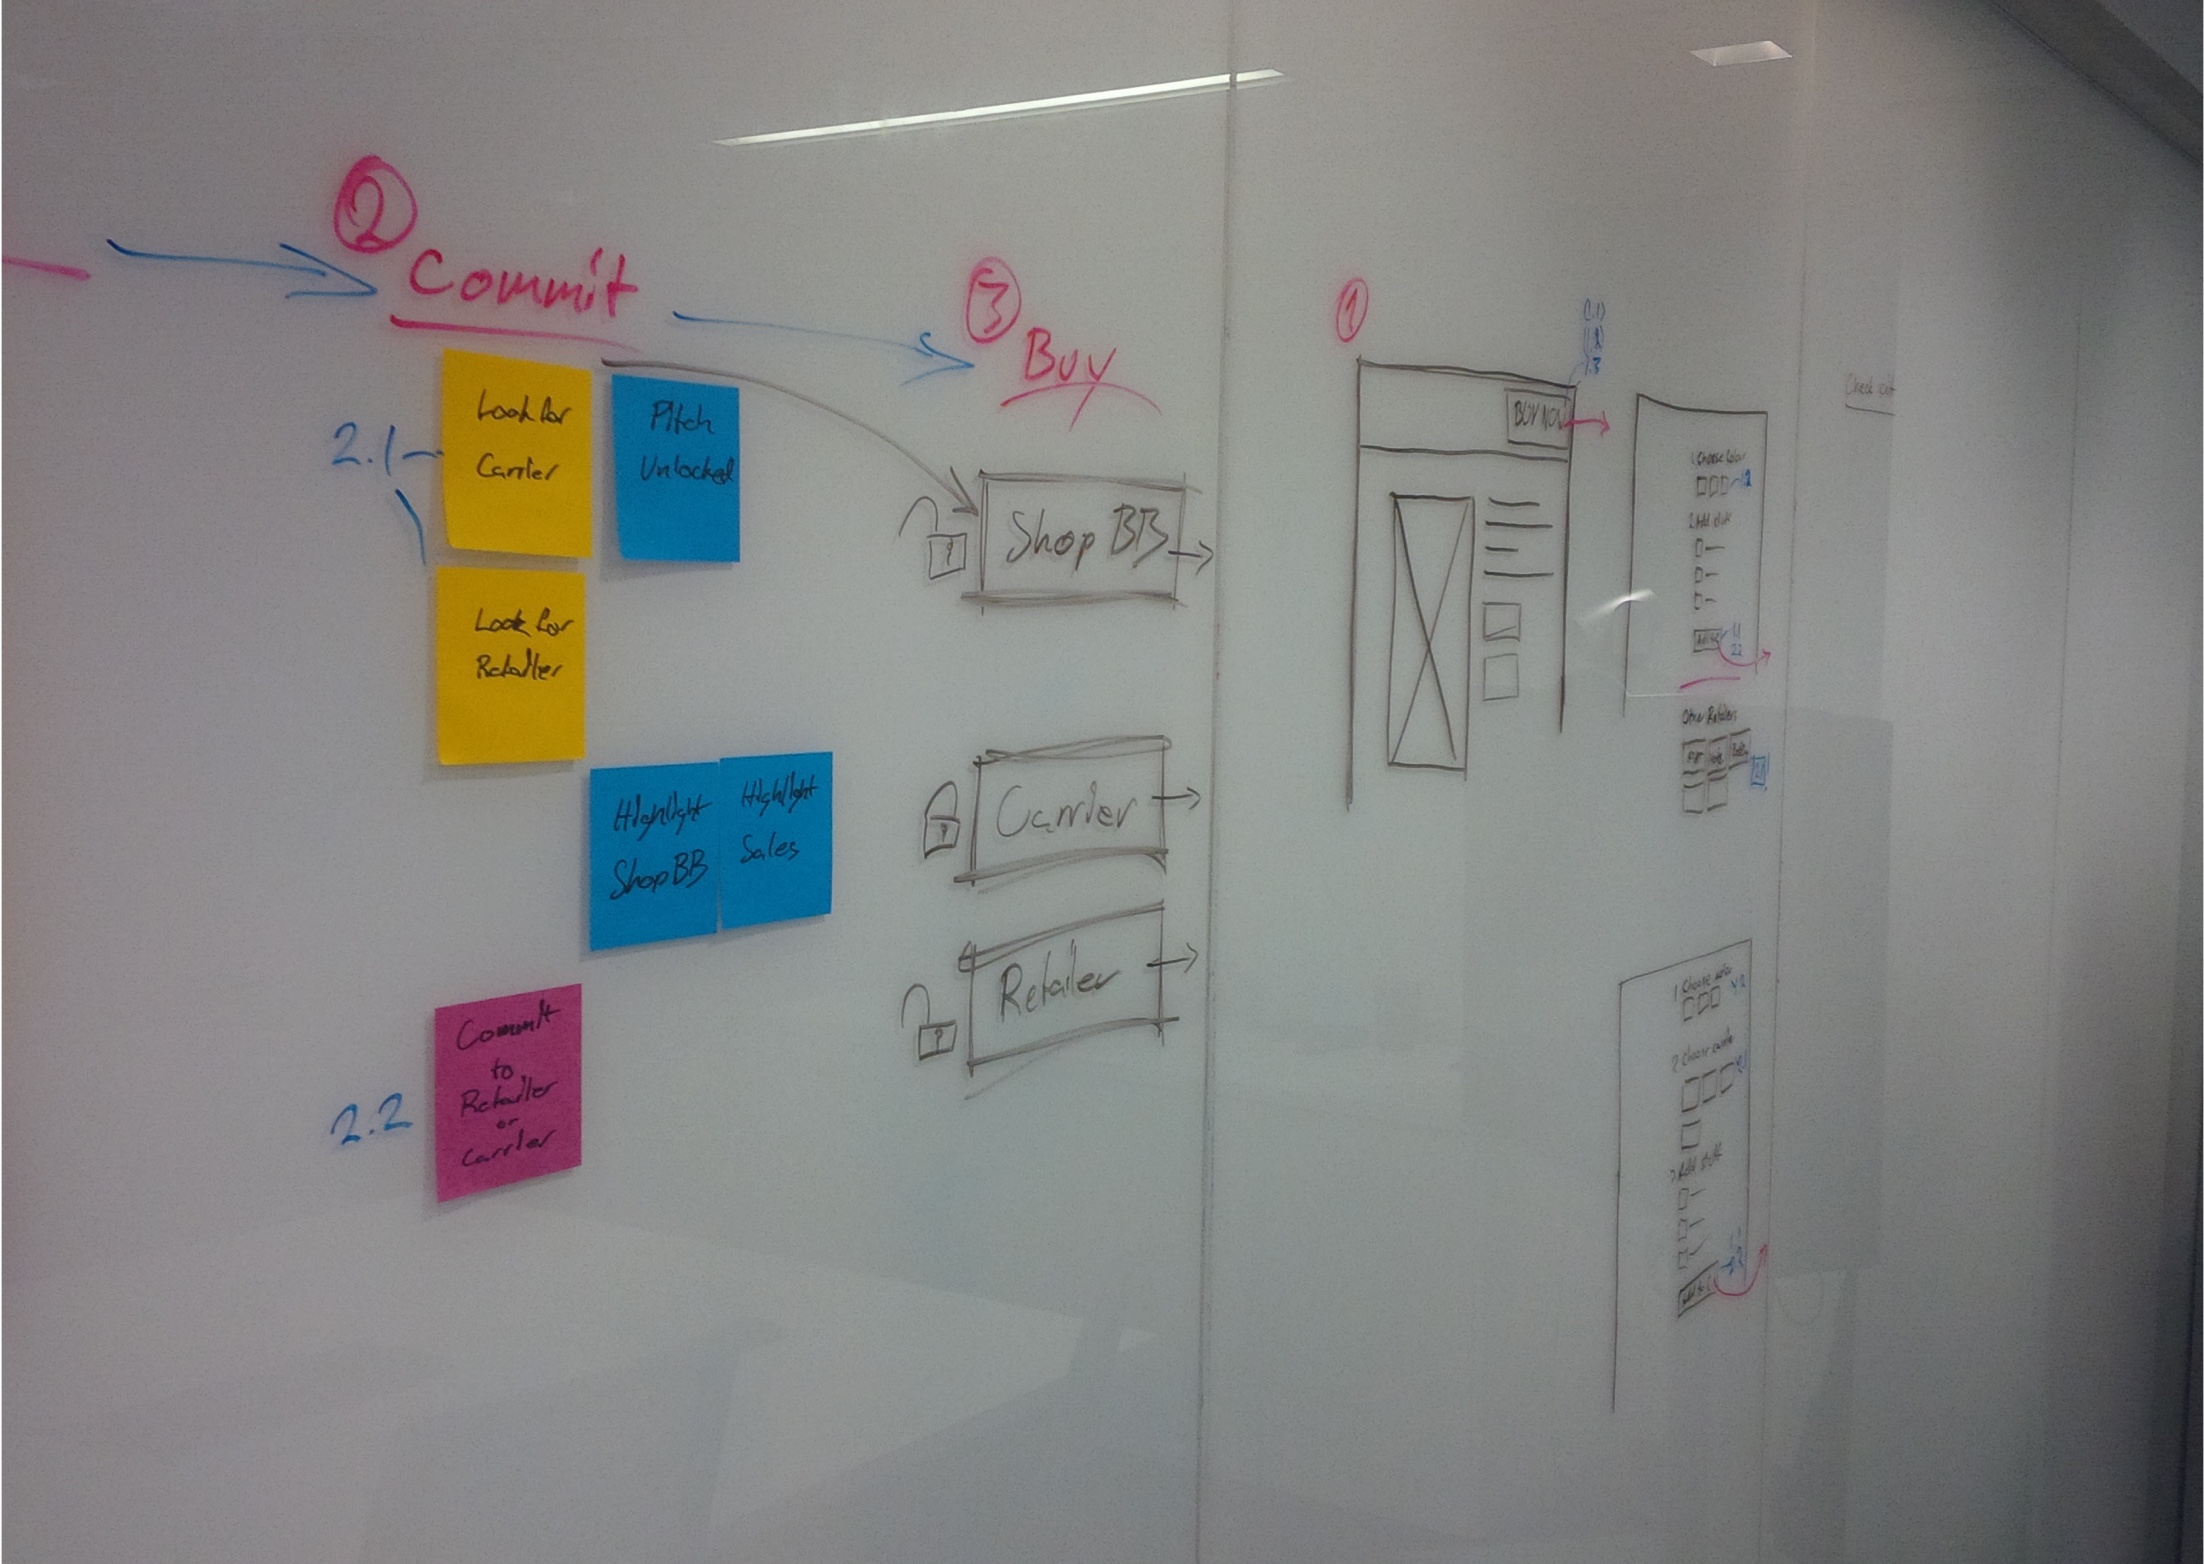 2
Commit
2.1
Look for
Carrier
Pitch
Unlocked
Look for
Retailer
Highlight
Shop BB
Highlight
Sales
2.2
Commit
to
Retailer
or
Carrier
3
Buy
Shop BB
Carrier
Retailer
1
1.3
BUY NOW
1 Choose Colour
2 Add stuff
2.2
Other Retailers
1 Choose color
2 Choose carrier
3 Add stuff
Check out